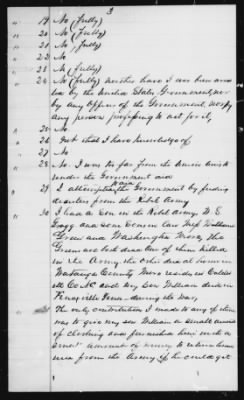 3
" 19 No (fully)
" 20 No (fully)
" 21 No, fully)
" 22 No
" 23 No, (fully)
" 24 No (fully) neither have I ever been
by the United States Government, nor
by any Officer of the Government, nor by
any person proposing to act for it,
" 25 No
" 26 Not that I have knowledge of,
" 27 No
" 28 No. I was too far from the
under the Government aid
" 29 I the Government by feeding
deserters from the Rebel Army
" 30 I had a Son in the Rebel army, W. E.
Gragg and son in law Wm
Green and Washington Moore, the
Green are both dead one of them killed
in the Army, the other died at home in
Watauga County Moore resides in Caldwell
Co NC and my Son William died in
Knoxville Tenn. during the war,
The only contribution I made to any of them
was to give my son William a small amount
of clothing and furnished him with a
small amount of money to return home
from the Army if he could get